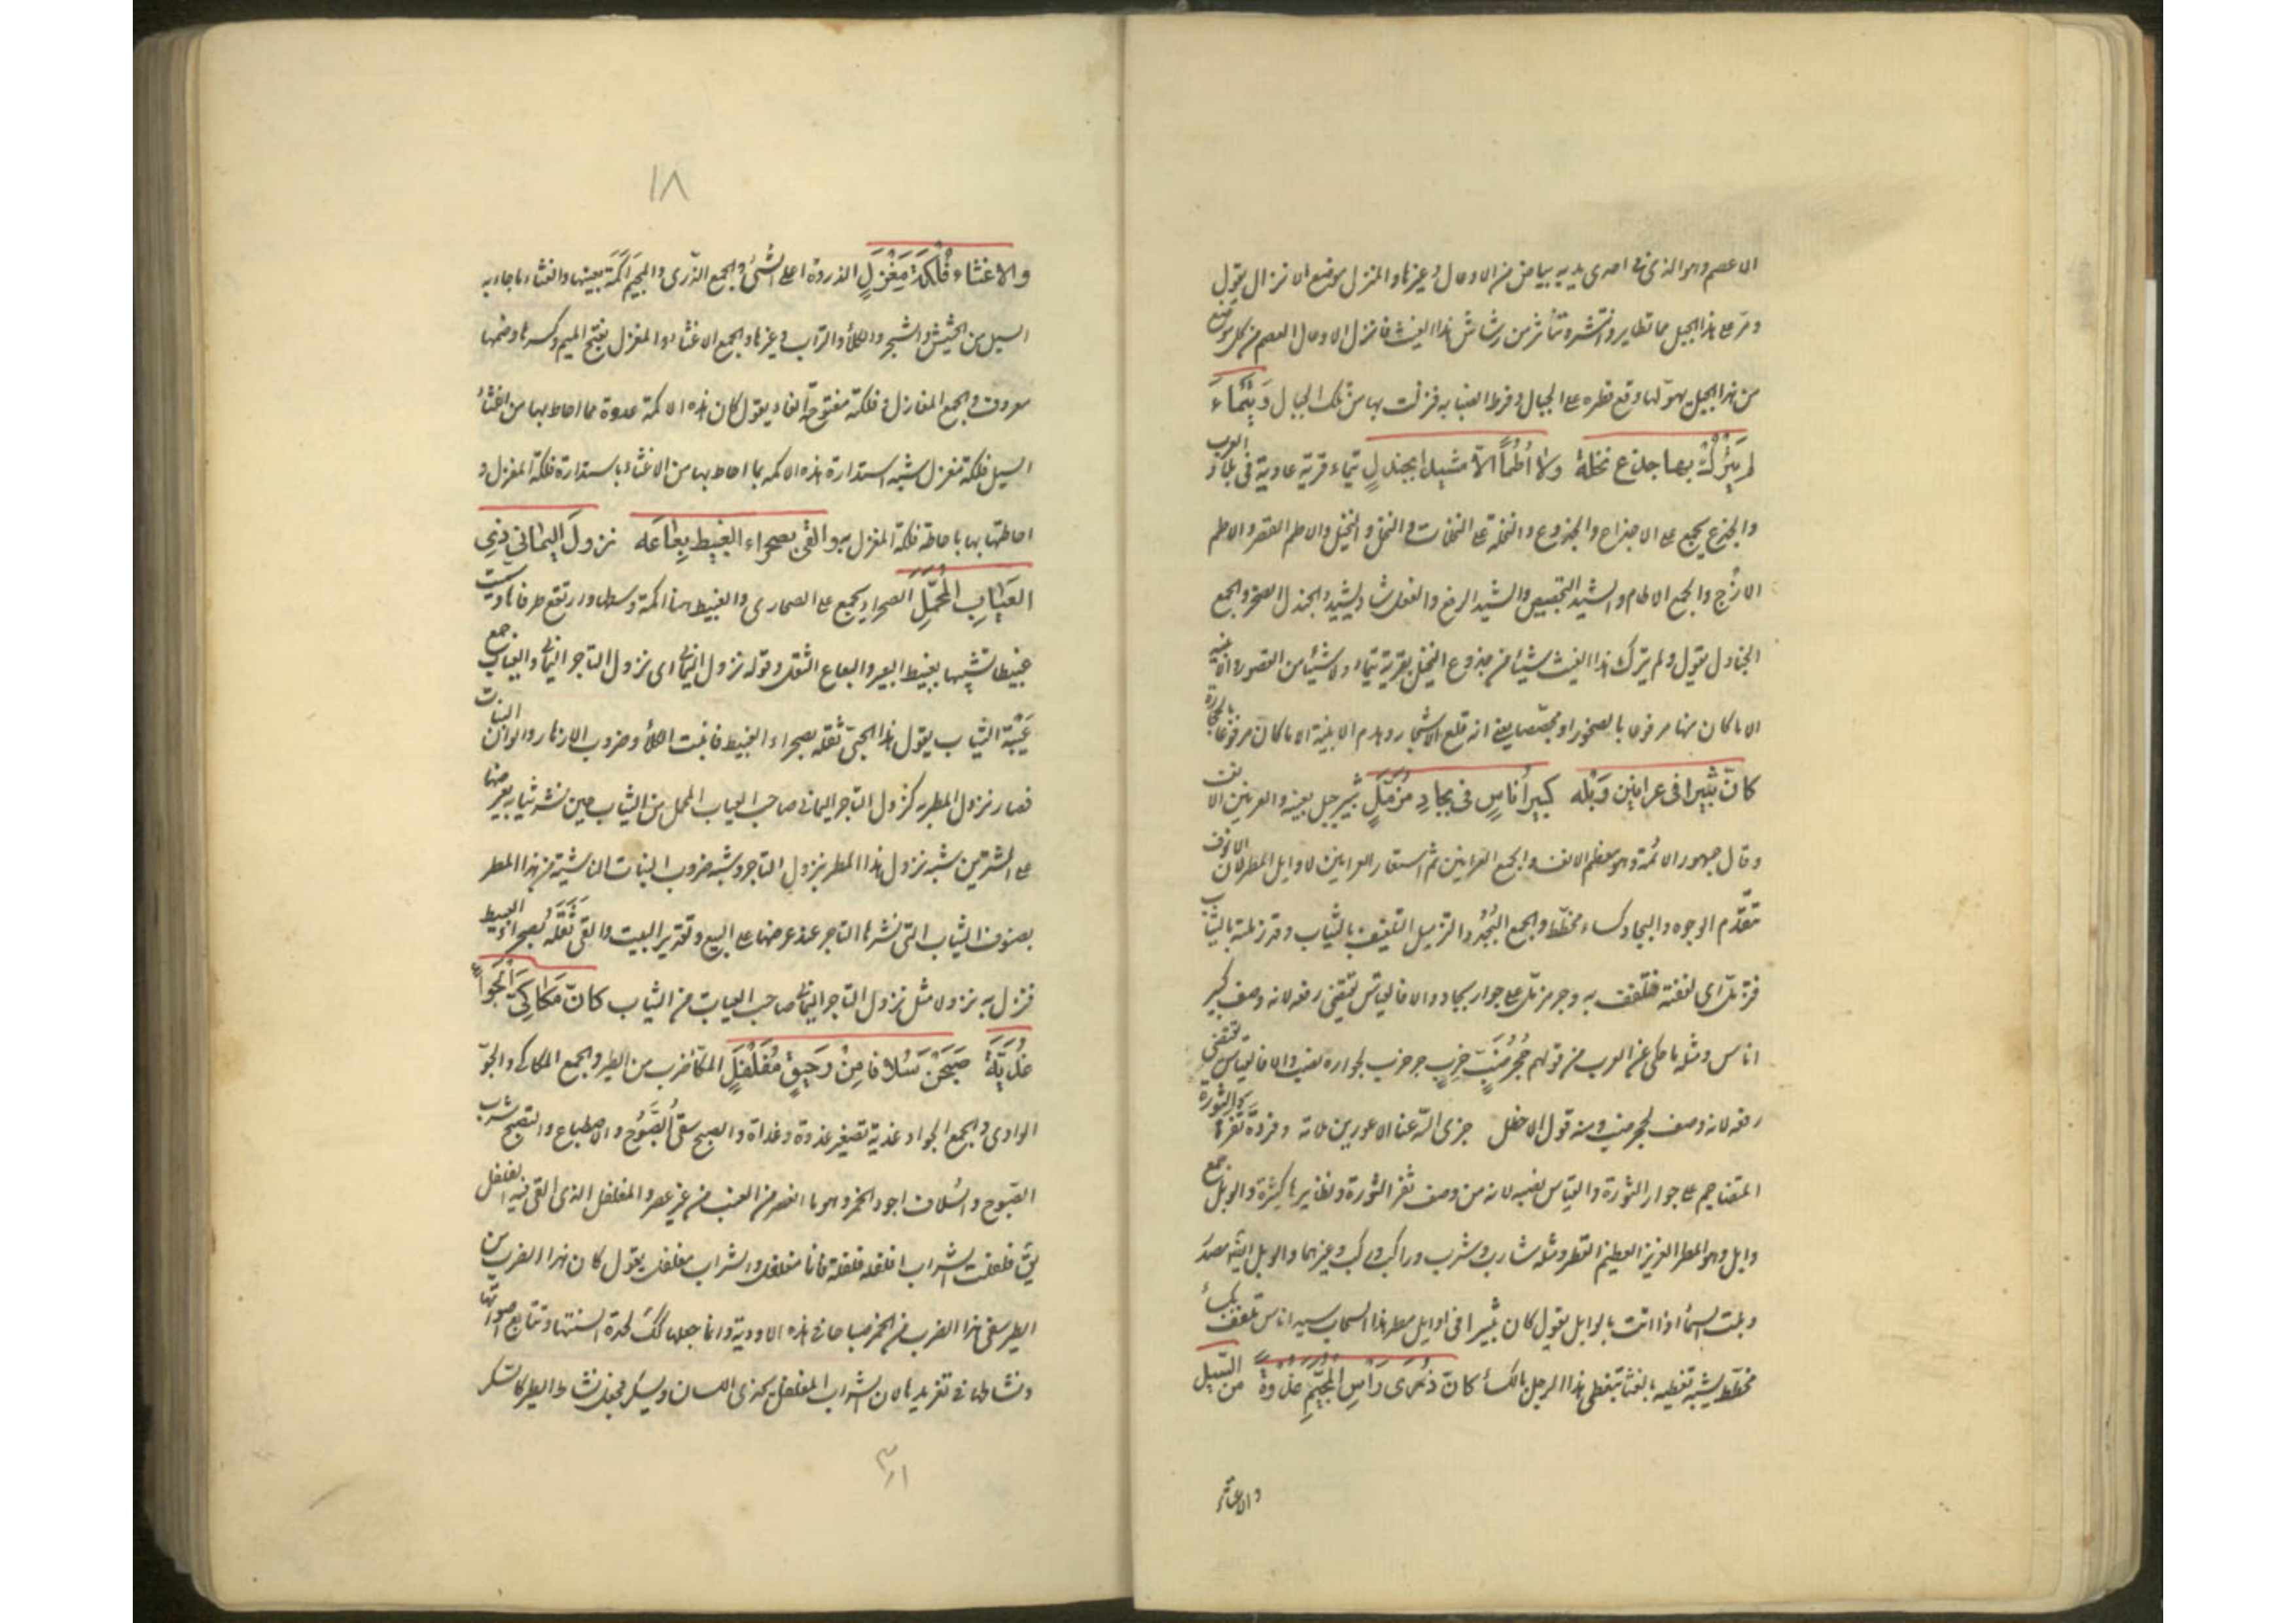 الاعصم وهو الذى فى احدى يديه بياض من الاوعال وغيرها والمنزل موضع الانزال يقول
ومر على هذا الجبل مما تطاير وانتشر وتناثر من رشاش هذا الغيث فانزل الاوعال العصم من كل موضع
من هذا الجبل لهولها وقع قطره على الجبال وفرط انصبابه فنزلت بها من تلك الجبال وَتَيْمَاءَ
لم يَتْرُكْ بها جذع نخلة ولا اُطُماً الاّ مشيدا بجندلٍ تيماء قرية عادية فى بلاد العرب
والجذع يجمع على الاجذاع والجذوع والنخلة على النخلات والنخل والنخيل والاطم القصر والاطم
الازج والجمع الاطام والشيد التجصيص والشيد الرفع والفعل شاد يشيد والجندل الصخر والجمع
الجنادل يقول ولم يترك هذا الغيث شيئا من جذوع النخل بقرية تيماء ولا شيئا من القصور والابنية
الا ما كان منها مرفوعا بالصخور او مجصّصا يعنى انه قلع الاشجار وهدم الابنية الا ما كان مرفوعا بالحجارة
كانّ ثبيرا فى عرانين وَبْله كبيرُ اُناسٍ فى بجادٍ مُزَمّلٍ ثبير جبل بعينه والعرنين الانف
وقال جمهور الائمة وهو معظم الانف والجمع العرانين ثم استعار العرانين لاوايل المطر لان الانوف
تتقدّم الوجوه والبجاد كساء مخطط والجمع البُجُد والتزميل التلفيف بالثياب وقد زملته بالثياب
فتزمل اى لففته فتلفف به وجر مزمل على جوار بجاد والا فالقياس يقتضى رفعه لانه وصف كبير
اناس ومثله ما حكى عن العرب من قولهم جُحرُ ضَبّ خَرِبٍ جر خرب لجواره ضب والا فالقياس يقتضى
رفعه لانه وصف لجحر ضب ومنه قول الاخطل جزى الله عنا الاعورين ملامة وفروةَ ثَفْرَ الثورة
المتضاجم على جوار الثورة والقياس نصبه لانه من وصف ثفر الثورة ونظايرها كثيرة والوبل جمع
وابل وهو المطر الغزير العظيم القطر ومثله شارب وشرب وراكب وركب وغيرهما والوبل ايضا مصدر
وبلت السماء اذا اتت بالوابل يقول كان ثبيرا فى اوايل مطر هذا السحاب سيد اناس تلفف بكساء
مخطّط يشبه تغطيه بالغثاء بتغطى هذا الرجل بالكساء كانّ ذُرَى رَأسِ المُجَيْمِرِ غُدْوَةً من السَّيل
والاغثاء
١٨
والاغثاء فَلْكَةُ مَغْزِلِ الذروة اعلى الشئ والجمع الذرى والمجيمر اَكَمَة بعينها والغثاء ما جاء به
السيل من الحشيش والشجر والكلأ والتراب وغيرها والجمع الاغثاء والمغزل بفتح الميم وكسرها وضمها
معروف والجمع المغازل وفلكته مفتوحة الفاء يقول كان هذه الاكمة غدوة مما احاط بها من اغثاء
السيل فلكة مغزل شبه استدارة هذه الاكمة بما احاط بها من الاغثاء باستدارة فلكة المغزل و
احاطتها بها باحاطة فلكة المغزل والقى بصحراء الغبيط بعاعَه نزولَ اليمانى ذى
العِيَابِ المُحَمَّلِ الصحراء يجمع على الصحارى والغبيط هنا اكمة وسطها وارتفع طرفاها وسميت
غبيطا تشبيها بغبيط البعير والبعاع الثقل وقوله نزول اليمانى اى نزول التاجر اليمانى والعياب جمع
عَيْبَة الثياب يقول هذا الحيىّ ثقله بصحراء الغبيط فانبت الكلأ وضروب الازهار والوان النبات
فصار نزول المطر به كنزول التاجر اليمانى صاحب العياب المحمل من الثياب حين نشر ثيابه يعرضها
على المشترين شبه نزول هذا المطر بنزول التاجر وشبه ضروب النبات الناشية من هذا المطر
بصنوف الثياب التى نشرها التاجر عند عرضها على البيع وتقدير البيت والقى ثِقَلَه بصحراء الغبيط
فنزل به نزولا مثل نزول التاجر اليمانى صاحب العياب من الثياب كانّ مَكَاكِىَّ الْجِوَاءِ
غُدَيَّةً صُبِحْنَ سُلَافا مِنْ رَحِيقٍ مُفَلْفَلِ المكّاء ضرب من الطير والجمع المكاكى والجو
الوادى والجمع الجواء وغدية تصغير غدوة وغداة والصبح سقى الصَّبُوح والاصطباح والتصبح شرب
الصبوح والسلاف اجود الخمر وهو ما انعصر من العنب من غير عصر والمفلفل الذى القى فيه الفلفل
يق فلفلت الشراب افلفله فلفلة فانا مفلفل والشراب مفلفل يقول كان هذا الضرب من
الطير سقى هذا الضرب من الخمر صباحا فى هذه الاودية وانما جعلها كك لحدة السنتها وتتابع اصواتها
ونشاطها فى تغريدها لان الشراب المفلفل يحذى اللسان ويسكر فجعل نشاط الطير كالسكر